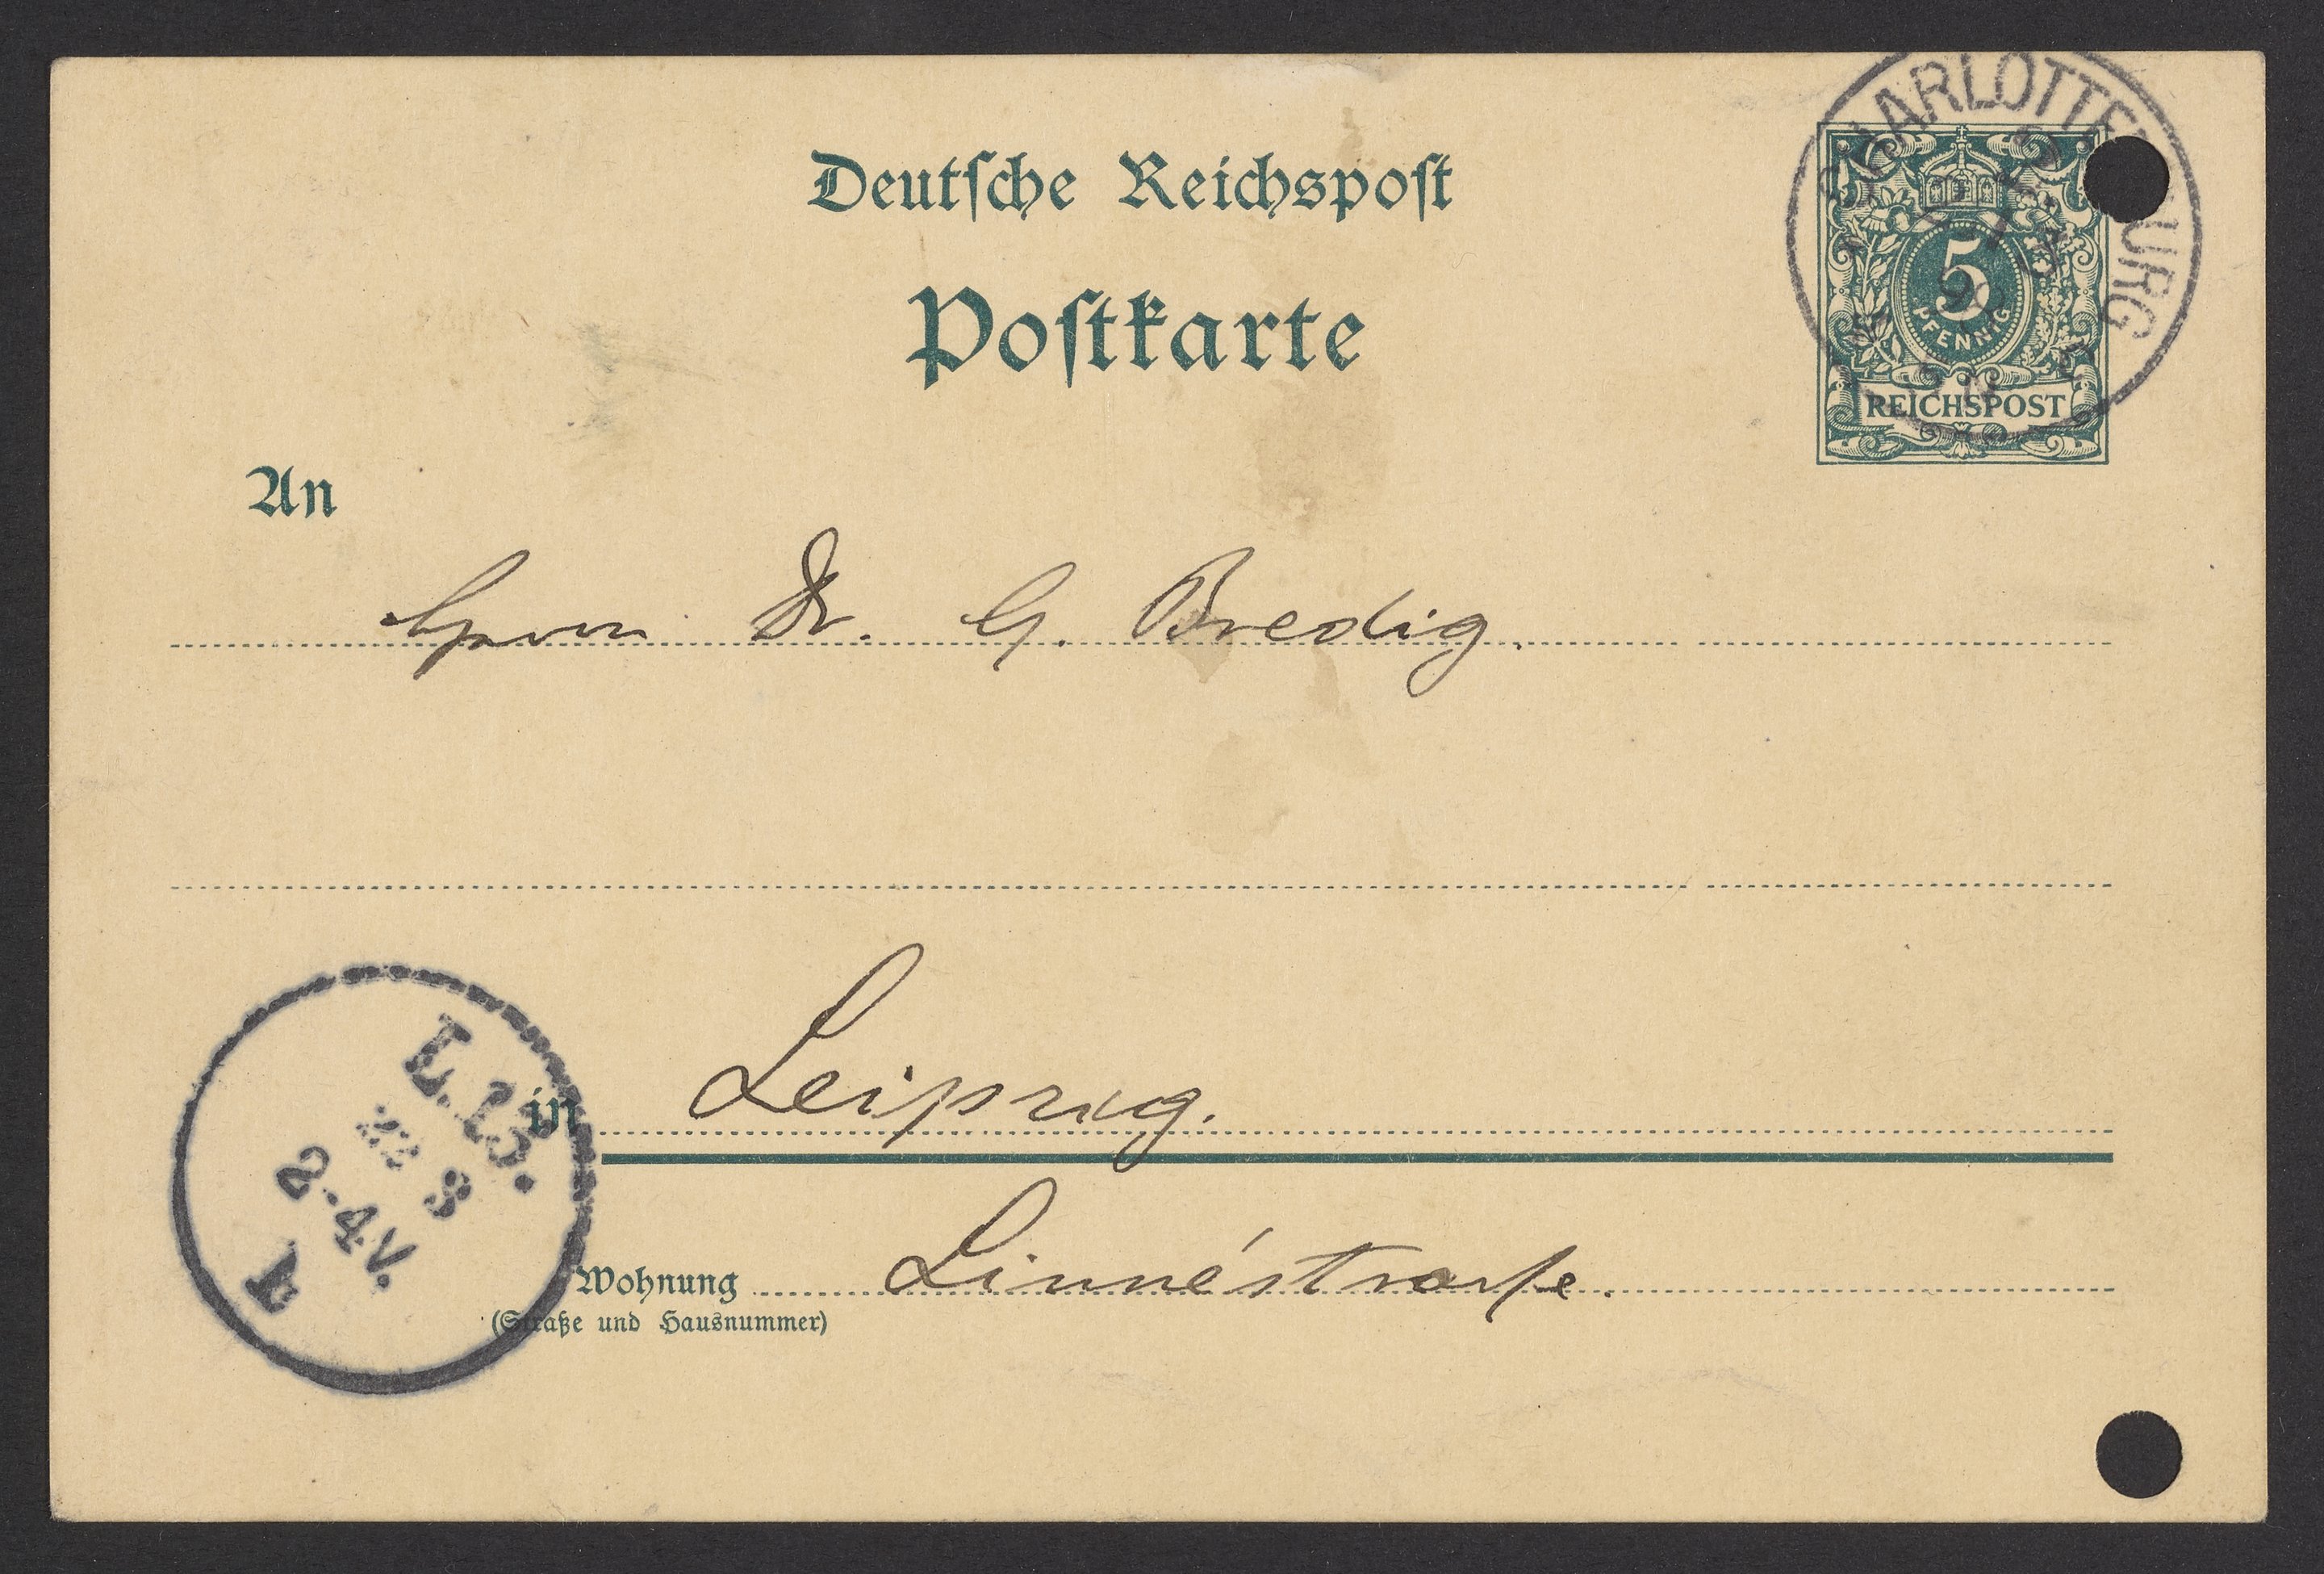 Deutsche Reichspost
Postkarte
CHARLOTTENBURG
5
PFENNIG
REICHSPOST
An
Herrn Dr. G. Bredig.
in Leipzig.
Wohnung Linnéstraße.
(Straße und Hausnummer)
L. 13.
8
2-4V.